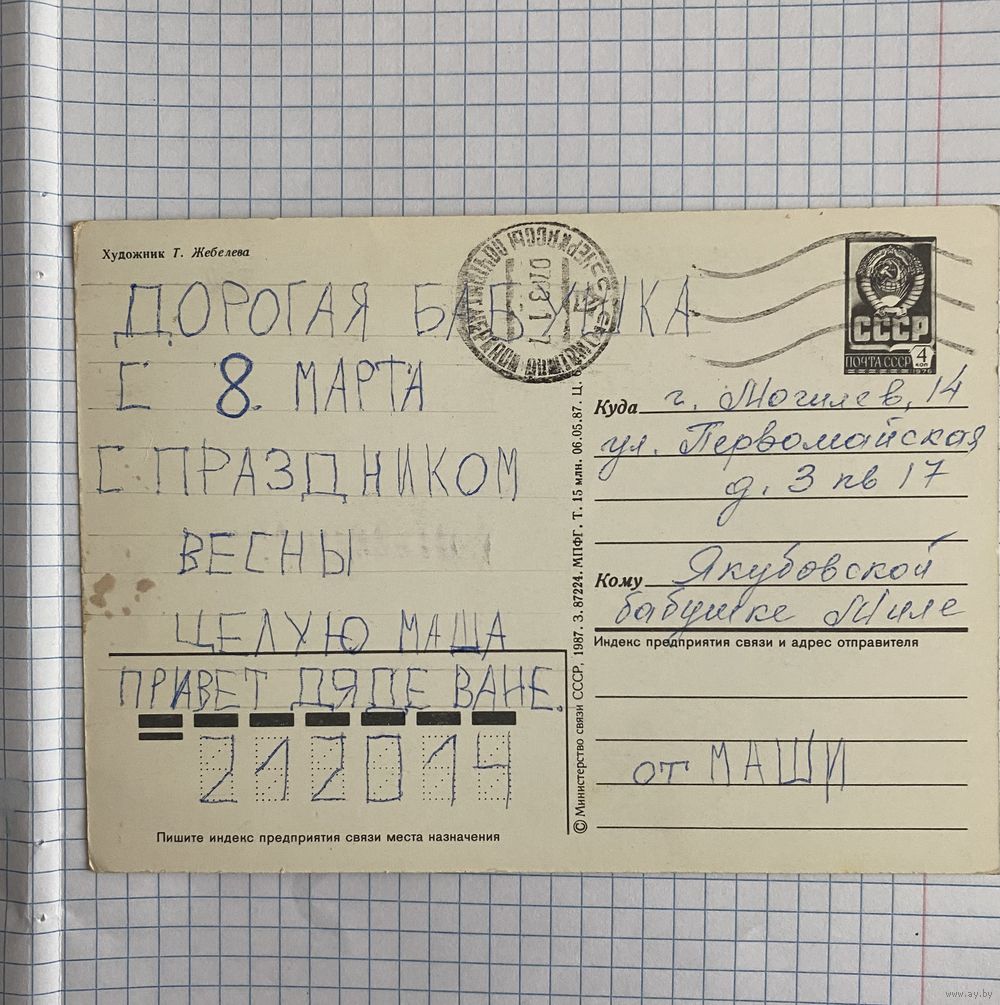 Художник Т. Жебелева
ДОРОГАЯ БАБУШКА
С 8 МАРТА
С ПРАЗДНИКОМ
ВЕСНЫ
ЦЕЛУЮ МАША
ПРИВЕТ ДЯДЕ ВАНЕ.
212014
Пишите индекс предприятия связи места назначения
© Министерство связи СССР, 1987. З. 87224. МПФГ. Т. 15 млн. 06.05.87. Ц.
СССР
ПОЧТА СССР 4 КОП
1976
Куда г. Могилев, 14
ул. Первомайская
д. 3 кв 17
Кому Якубовской
бабушке Миле
Индекс предприятия связи и адрес отправителя
от МАШИ
www.ay.by